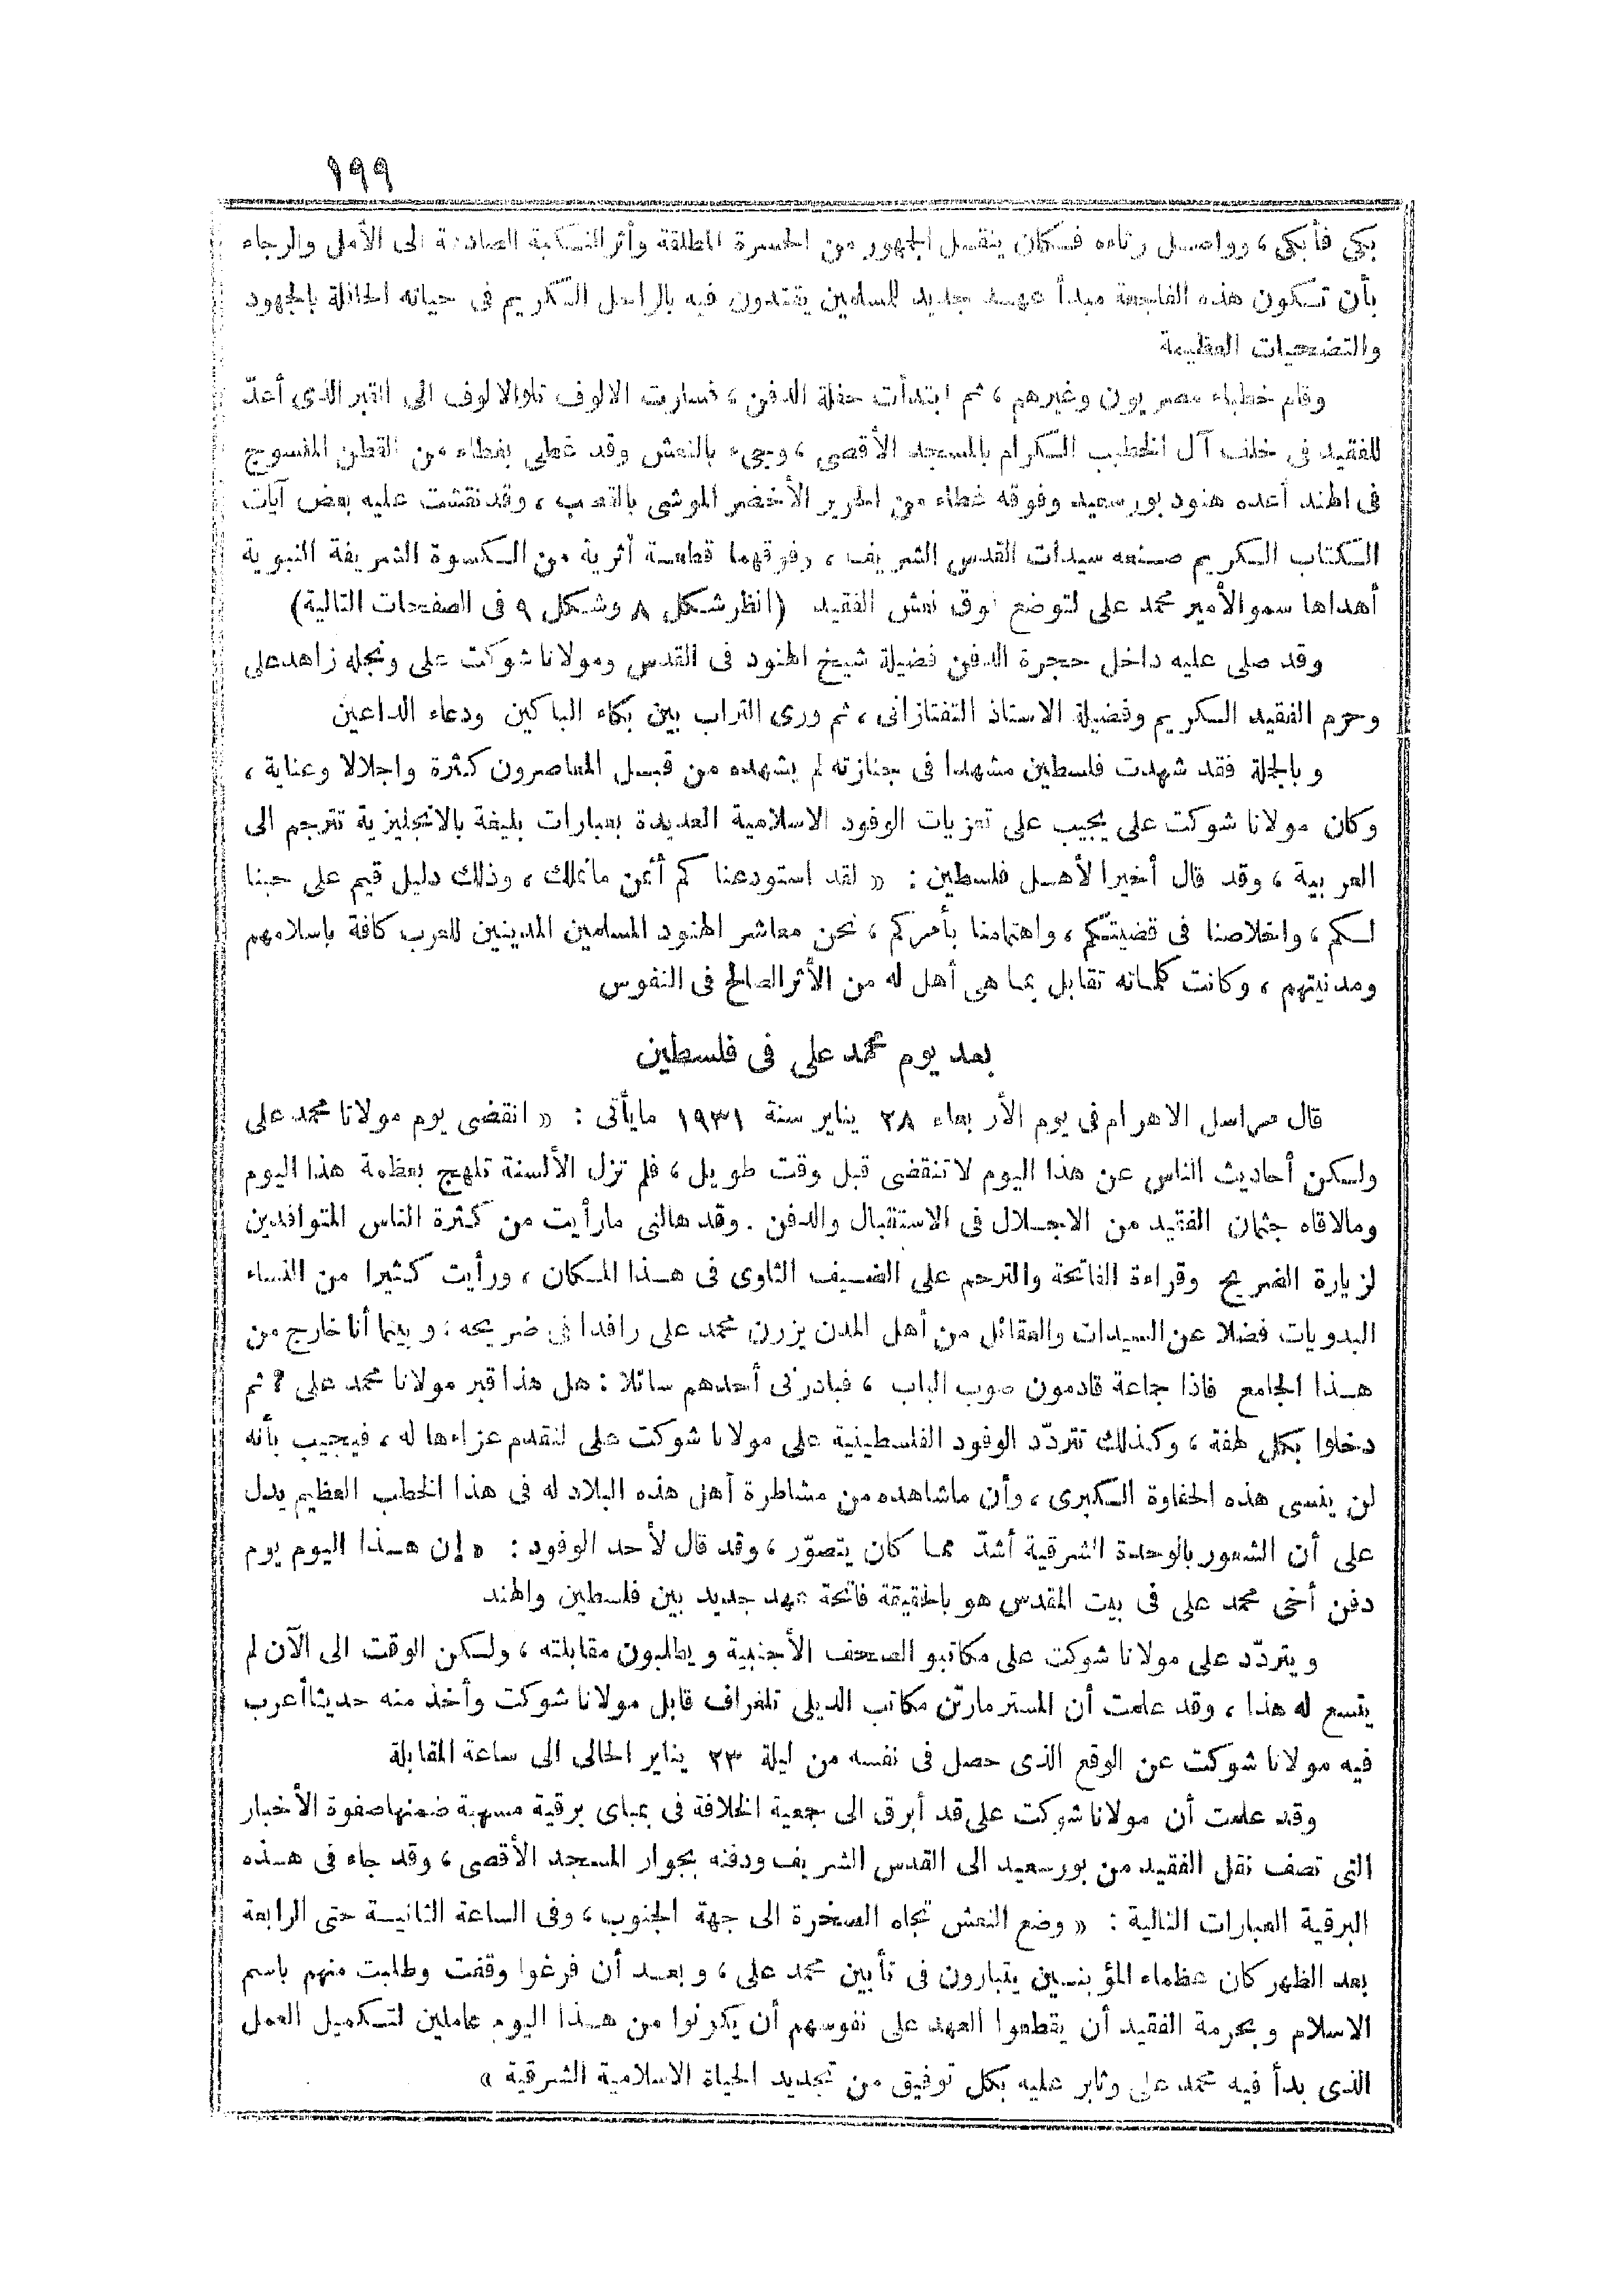 ١٩٩
بكى فأبكى ، وواصل رثاءه فكان ينقل الجمهور من الحسرة المطلقة وأثر النكبة الصادعة الى الأمل والرجاء
بأن تكون هذه الفاجعة مبدأ عهد جديد للمسلمين يقتدون فيه بالراحل الكريم فى حياته الحافلة بالجهود
والتضحيات العظيمة
وقام خطباء مصريون وغيرهم ، ثم ابتدأت حفلة الدفن ، فسارت الالوف تلو الالوف الى القبر الذى أعدّ
للفقيد فى خلف آل الخطيب الكرام بالمسجد الأقصى ، وجىء بالنعش وقد غطى بغطاء من القطن المنسوج
فى الهند أعده هنود بورسعيد وفوقه غطاء من الحرير الأخضر الموشى بالقصب ، وقد نقشت عليه بعض آيات
الكتاب الكريم صنعه سيدات القدس الشريف ، وفوقهما قطعة أثرية من الكسوة الشريفة النبوية
أهداها سمو الأمير محمد على لتوضع فوق نعش الفقيد (انظر شكل ٨ وشكل ٩ فى الصفحات التالية)
وقد صلى عليه داخل حجرة الدفن فضيلة شيخ الهنود فى القدس ومولانا شوكت على ونجله زاهد على
وحرم الفقيد الكريم وفضيلة الاستاذ التفتازانى ، ثم ورى التراب بين بكاء الباكين ودعاء الداعين
وبالجملة فقد شهدت فلسطين مشهدا فى جنازته لم يشهده من قبل المعاصرون كثرة واجلالا وعناية ،
وكان مولانا شوكت على يجيب على تعزيات الوفود الاسلامية العديدة بعبارات بليغة بالانجليزية تترجم الى
العربية ، وقد قال أخيرا لأهل فلسطين : « لقد استودعناكم أثمن مانملك ، وذلك دليل قيم على حبنا
لكم ، واخلاصنا فى قضيتكم ، واهتمامنا بأمركم ، نحن معاشر الهنود المسلمين المدينين للعرب كافة باسلامهم
ومدنيتهم ، وكانت كلماته تقابل بما هى أهل له من الأثر الصالح فى النفوس
بعد يوم محمد على فى فلسطين
قال مراسل الاهرام فى يوم الأربعاء ٢٨ يناير سنة ١٩٣١ مايأتى : « انقضى يوم مولانا محمد على
ولكن أحاديث الناس عن هذا اليوم لاتنقضى قبل وقت طويل ، فلم تزل الألسنة تلهج بعظمة هذا اليوم
ومالاقاه جثمان الفقيد من الاجلال فى الاستقبال والدفن . وقد هالنى مارأيت من كثرة الناس المتوافدين
لزيارة الضريح وقراءة الفاتحة والترحم على الضيف الثاوى فى هذا المكان ، ورأيت كثيرا من النساء
البدويات فضلا عن السيدات والعقائل من أهل المدن يزرن محمد على راقدا فى ضريحه ، وبينما أنا خارج من
هذا الجامع فاذا جماعة قادمون صوب الباب ، فبادرنى أحدهم سائلا : هل هذا قبر مولانا محمد على ؟ ثم
دخلوا بكل لهفة ، وكذلك تتردّد الوفود الفلسطينية على مولانا شوكت على لتقدم عزاءها له ، فيجيب بأنه
لن ينسى هذه الحفاوة الكبرى ، وأن ماشاهده من مشاطرة أهل هذه البلاد له فى هذا الخطب العظيم يدل
على أن الشعور بالوحدة الشرقية أشدّ مما كان يتصوّر ، وقد قال لأحد الوفود : « إن هذا اليوم يوم
دفن أخى محمد على فى بيت المقدس هو بالحقيقة فاتحة عهد جديد بين فلسطين والهند
ويتردّد على مولانا شوكت على مكاتبو الصحف الأجنبية ويطلبون مقابلته ، ولكن الوقت الى الآن لم
يتسع له هذا ، وقد علمت أن المستر مارتن مكاتب الديلى تلغراف قابل مولانا شوكت وأخذ منه حديثا أعرب
فيه مولانا شوكت عن الوقع الذى حصل فى نفسه من ليلة ٢٣ يناير الحالى الى ساعة المقابلة
وقد علمت أن مولانا شوكت على قد أبرق الى جمعية الخلافة فى بمباى برقية مسهبة ضمنها صفوة الأخبار
التى تصف نقل الفقيد من بورسعيد الى القدس الشريف ودفنه بجوار المسجد الأقصى ، وقد جاء فى هذه
البرقية العبارات التالية : « وضع النعش تجاه الصخرة الى جهة الجنوب ، وفى الساعة الثانية حتى الرابعة
بعد الظهر كان عظماء المؤبنين يتبارون فى تأبين محمد على ، وبعد أن فرغوا وقفت وطلبت منهم باسم
الاسلام وبحرمة الفقيد أن يقطعوا العهد على نفوسهم أن يكونوا من هذا اليوم عاملين لتكميل العمل
الذى بدأ فيه محمد على وثابر عليه بكل توفيق من تجديد الحياة الاسلامية الشرقية »